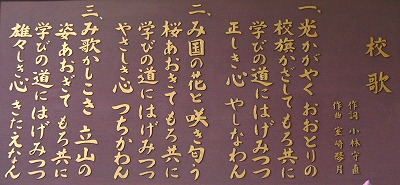 校歌
作詞 小林守直
作曲 室崎琴月
一、光かがやく おおとりの
校旗かざして もろ共に
学びの道に はげみつつ
正しき心 やしなわん
二、み国の花と 咲き匂う
桜あおぎて もろ共に
学びの道に はげみつつ
やさしき心 つちかわん
三、み歌かしこき 立山の
姿あおぎて もろ共に
学びの道に はげみつつ
雄々しき心 きたえなん